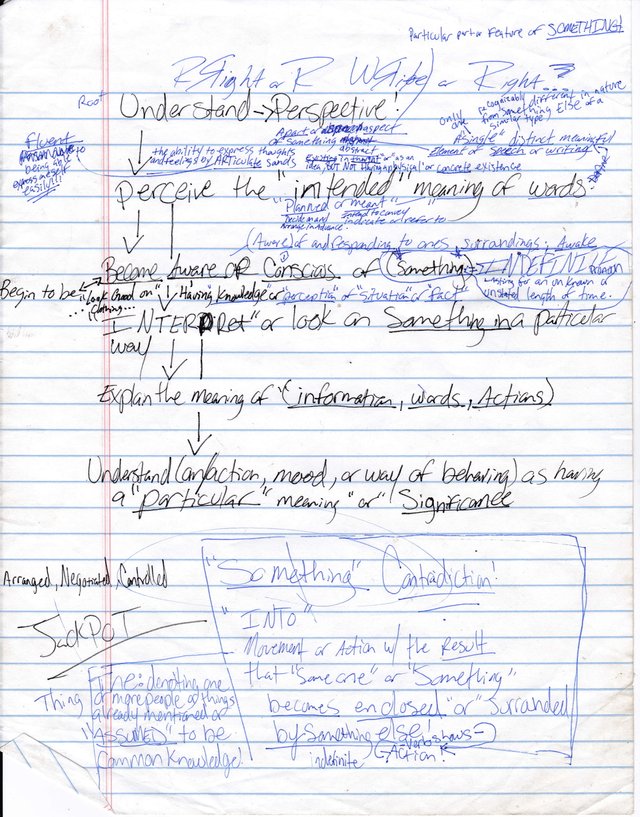 Particular part or Feature of SOMETHING!
or R or Right
Root
Understand -> Perspective!
recognizably different in nature
from something ELSE of a
similar type
only
one
Apart or aspect
of something abstract
"A single" distinct meaningful
element of speech or writing
Fluent
being able
express oneself
easily!!!
the ability to express thoughts
and feelings by ARticulate sands
Existing in thought or as an
idea, BUT NOT Having a physical or concrete existence
Perceive the "intended" meaning of words
"Planned or meant"
Decide and
Arrange in Advance.
Intend to convey
indicate or refer to
(Aware) of and responding to ones surrandings, Awake
Become Aware OR Conscious of (Something) INDEFINITE
pronoun
lasting for an unknown or
unstated length of time.
Begin to be
"Look Good on"
...Clothing...
Having "knowledge" or "perception" of "situation" or "fact"
INTERPRet" or look on Something in a particular
way
Explain the meaning of "(information, words, Actions)
Understand (an action, mood, or way of behaving) as having
a "particular" meaning "or" Significance
Arranged, Negotiated, Controlled
"Something" Contradiction!
JackPOT
"INTO"
Movement or Action w/ the Result
that "Someone" or "Something"
becomes enclosed "or" Surranded
by Something else!
indefinite
verb shows
Action!
Thing
The: denoting one
or more people or things
already mentioned or
"ASSUMED" to be
Common Knowledge!